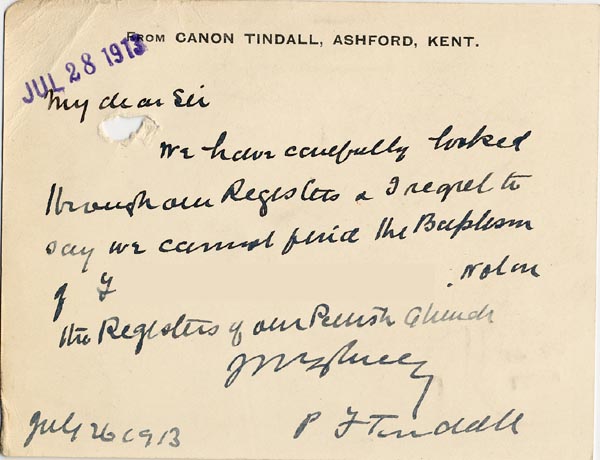 FROM CANON TINDALL, ASHFORD, KENT.
JUL 28 1913
My dear Sir
We have carefully looked
through our Registers & I regret to
say we cannot find the Baptism
of F
. Not in
the Registers of our Parish Church
Yrs truly
P F Tindall
July 26 1913